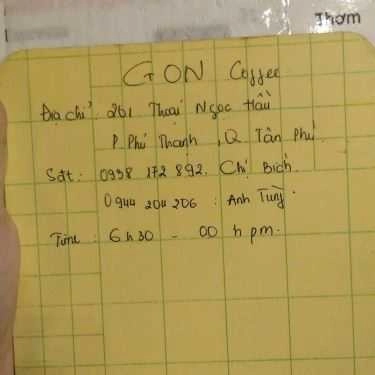 Thơm
GON Coffee
Địa chỉ: 261 Thoại Ngọc Hầu
P. Phú Thạnh, Q. Tân Phú.
Sđt: 0938 172 892. Chị Bích.
0944 204 206 : Anh Tùng.
Time : 6h30 - 00 h pm.